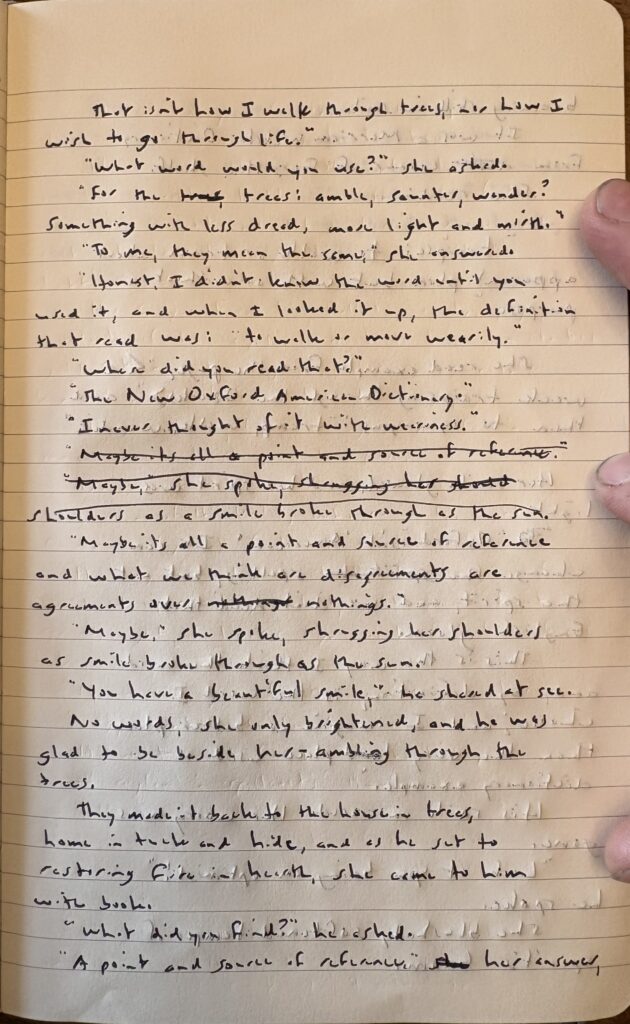 That isn't how I walk through trees, nor how I
wish to go through life."
"What word would you use?" she asked.
"For the trees, trees: amble, saunter, wander?
Something with less dread, more light and mirth."
"To me, they mean the same," she answered.
"Honest, I didn't know the word until you
used it, and when I looked it up, the definition
that read was: "to walk or move wearily."
"Where did you read that?"
"The New Oxford American Dictionary."
"I never thought of it with weariness."
"Maybe its all a point and source of reference."
"Maybe," she spoke, shrugging her should
shoulders as a smile broke through as the sun.
"Maybe its all a point and source of reference
and what we think are disagreements are
agreements over nothings nothings."
"Maybe," she spoke, shrugging her shoulders
as smile broke through as the sun.
"You have a beautiful smile," he shared at see.
No words, she only brightened, and he was
glad to be beside her-ambling through the
trees.
They made it back to the house in trees,
home in tuck and hide, and as he set to
restoring fire in hearth, she came to him
with book.
"What did you find?" he asked.
"A point and source of reference," she her answer,